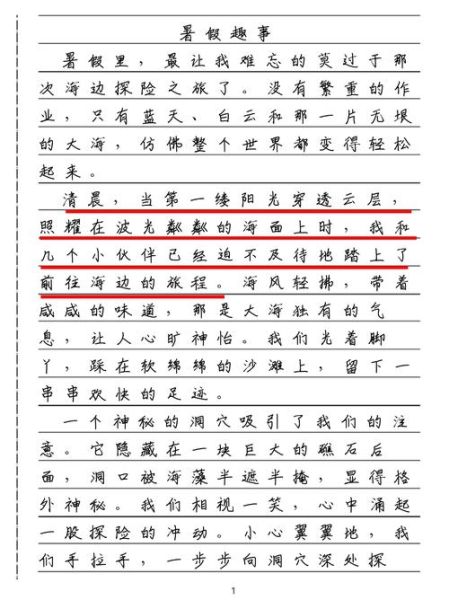 暑假趣事
暑假里，最让我难忘的莫过于那
次海边探险之旅了。没有繁重的作
业，只有蓝天、白云和那一片无垠
的大海，仿佛整个世界都变得轻松
起来。
清晨，当第一缕阳光穿透云层，
照耀在波光粼粼的海面上时，我和
几个小伙伴已经迫不及待地踏上了
前往海边的旅程。海风轻拂，带着
咸咸的味道，那是大海独有的气
息，让人心旷神怡。我们光着脚
丫，踩在软绵绵的沙滩上，留下一
串串欢快的足迹。
一个神秘的洞穴吸引了我们的注
意。它隐藏在一块巨大的礁石后
面，洞口被海藻半遮半掩，显得格
外神秘。我们相视一笑，心中涌起
一股探险的冲动。小心翼翼地，我
们手拉手，一步步向洞穴深处探
1